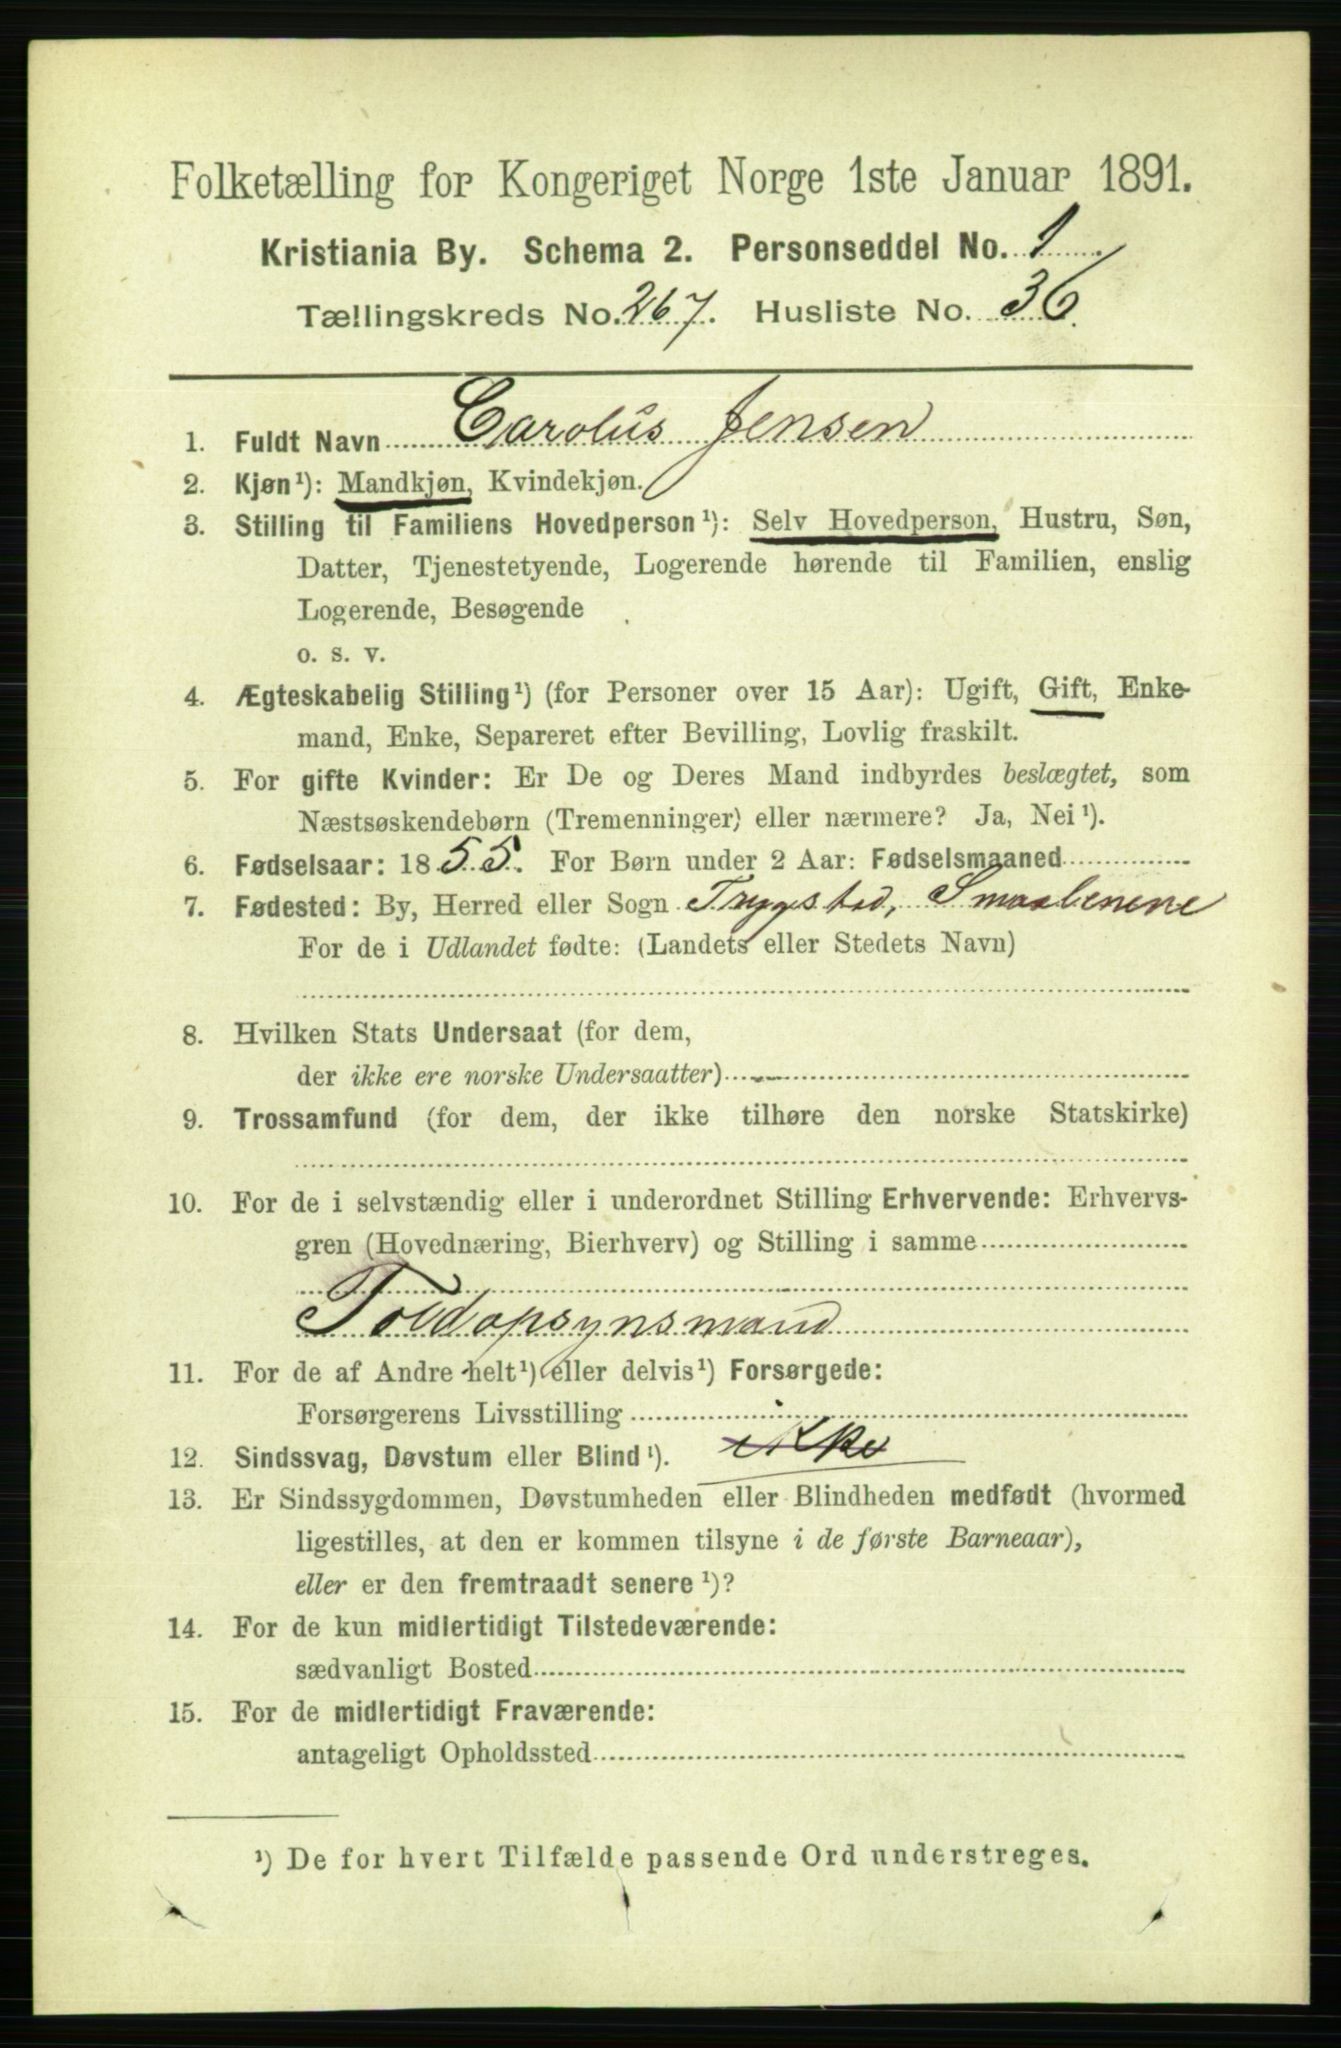 Folketælling for Kongeriget Norge 1ste Januar 1891.
Kristiania By. Schema 2. Personseddel No. 1
Tællingskreds No. 267. Husliste No. 36.
1. Fuldt Navn Carolus Jensen
2. Kjøn¹): Mandkjøn, Kvindekjøn.
3. Stilling til Familiens Hovedperson¹): Selv Hovedperson, Hustru, Søn,
Datter, Tjenestetyende, Logerende hørende til Familien, enslig
Logerende, Besøgende
o. s. v.
4. Ægteskabelig Stilling¹) (for Personer over 15 Aar): Ugift, Gift, Enke-
mand, Enke, Separeret efter Bevilling, Lovlig fraskilt.
5. For gifte Kvinder: Er De og Deres Mand indbyrdes beslægtet, som
Næstsøskendebørn (Tremenninger) eller nærmere? Ja, Nei¹).
6. Fødselsaar: 1855. For Børn under 2 Aar: Fødselsmaaned
7. Fødested: By, Herred eller Sogn Trygstad, Smaalenene
For de i Udlandet fødte: (Landets eller Stedets Navn)
8. Hvilken Stats Undersaat (for dem,
der ikke ere norske Undersaatter)
9. Trossamfund (for dem, der ikke tilhøre den norske Statskirke)
10. For de i selvstændig eller i underordnet Stilling Erhvervende: Erhvervs-
gren (Hovednæring, Bierhverv) og Stilling i samme
Toldopsynsmand
11. For de af Andre helt¹) eller delvis¹) Forsørgede:
Forsørgerens Livsstilling
12. Sindssvag, Døvstum eller Blind¹). ikke
13. Er Sindssygdommen, Døvstumheden eller Blindheden medfødt (hvormed
ligestilles, at den er kommen tilsyne i de første Barneaar),
eller er den fremtraadt senere¹)?
14. For de kun midlertidigt Tilstedeværende:
sædvanligt Bosted
15. For de midlertidigt Fraværende:
antageligt Opholdssted
¹) De for hvert Tilfælde passende Ord understreges.